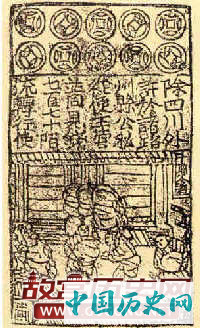 除四川外
許於諸路
州縣公私
從便主管
並同見錢
七百七十陌
流轉行使
中国历史网